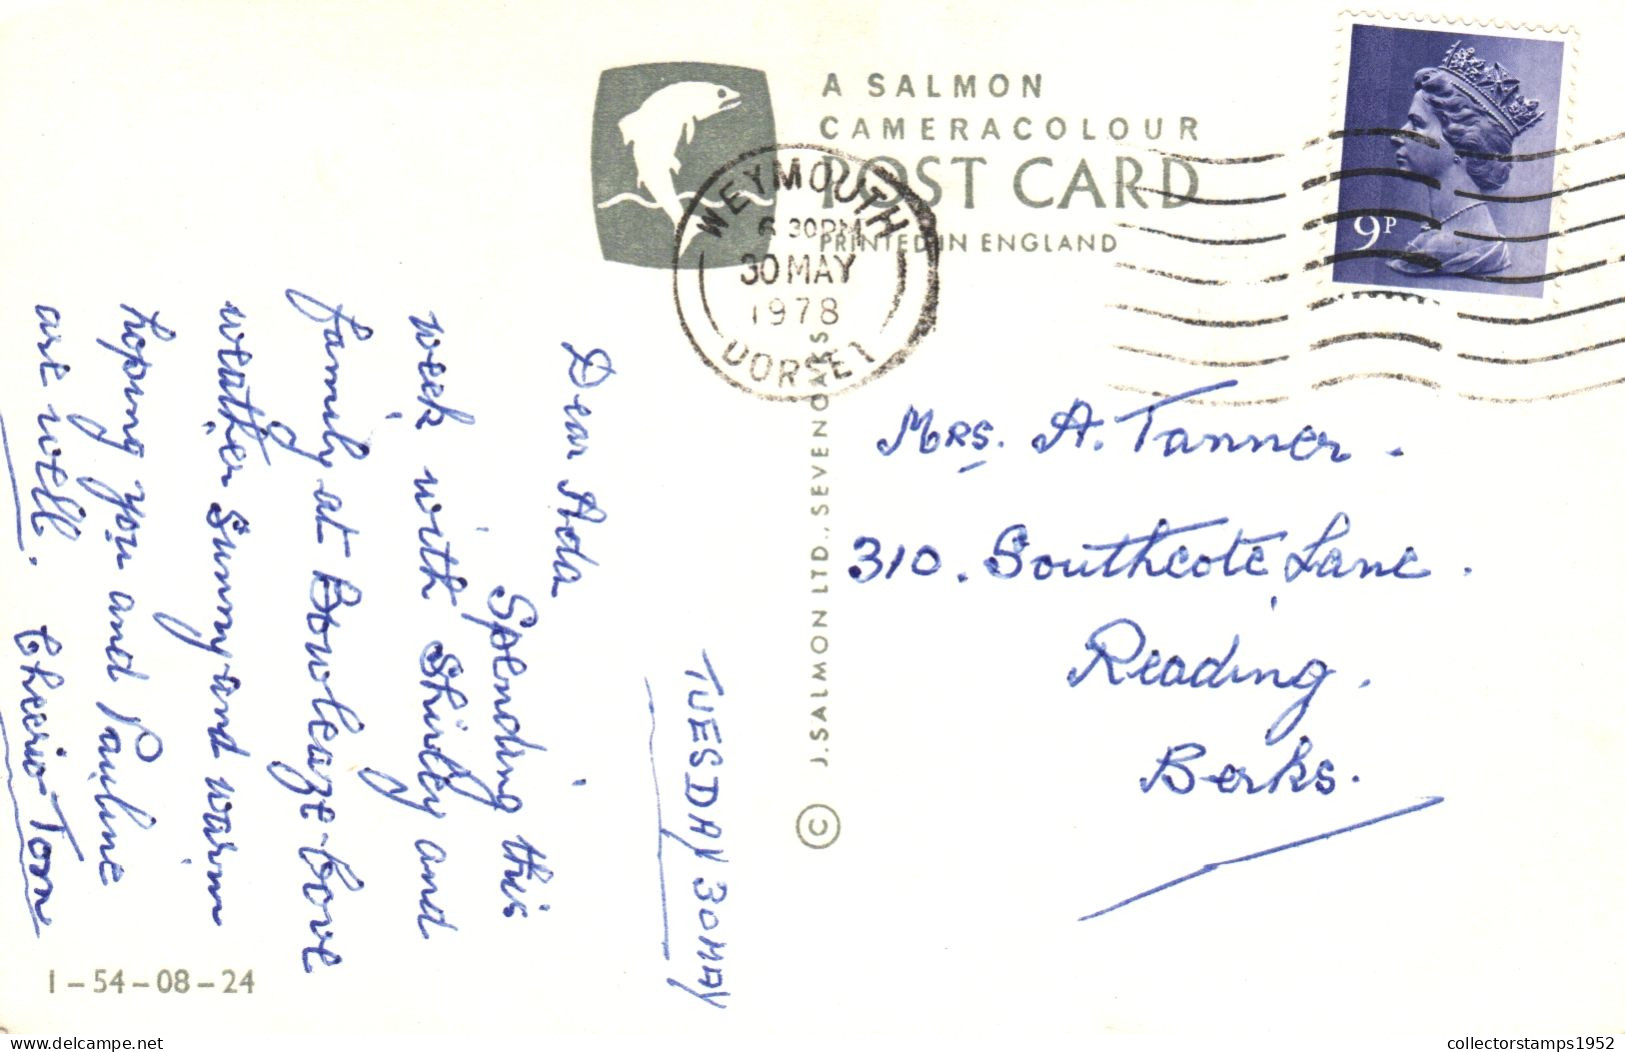 A SALMON
CAMERACOLOUR
POST CARD
PRINTED IN ENGLAND
WEYMOUTH
6 30PM
30 MAY
1978
DORSET
9P
TUESDAY 30 MAY
Dear Ada
Spending this
week with Shirley and
family at Bowleaze-cove
weather Sunny and warm
hoping you and Pauline
are well. Cheerio Tom
Mrs. A. Tanner.
310. Southcote Lane.
Reading.
Berks.
© J. SALMON LTD., SEVENOAKS
1-54-08-24
delcampe.net
collectorstamps1952